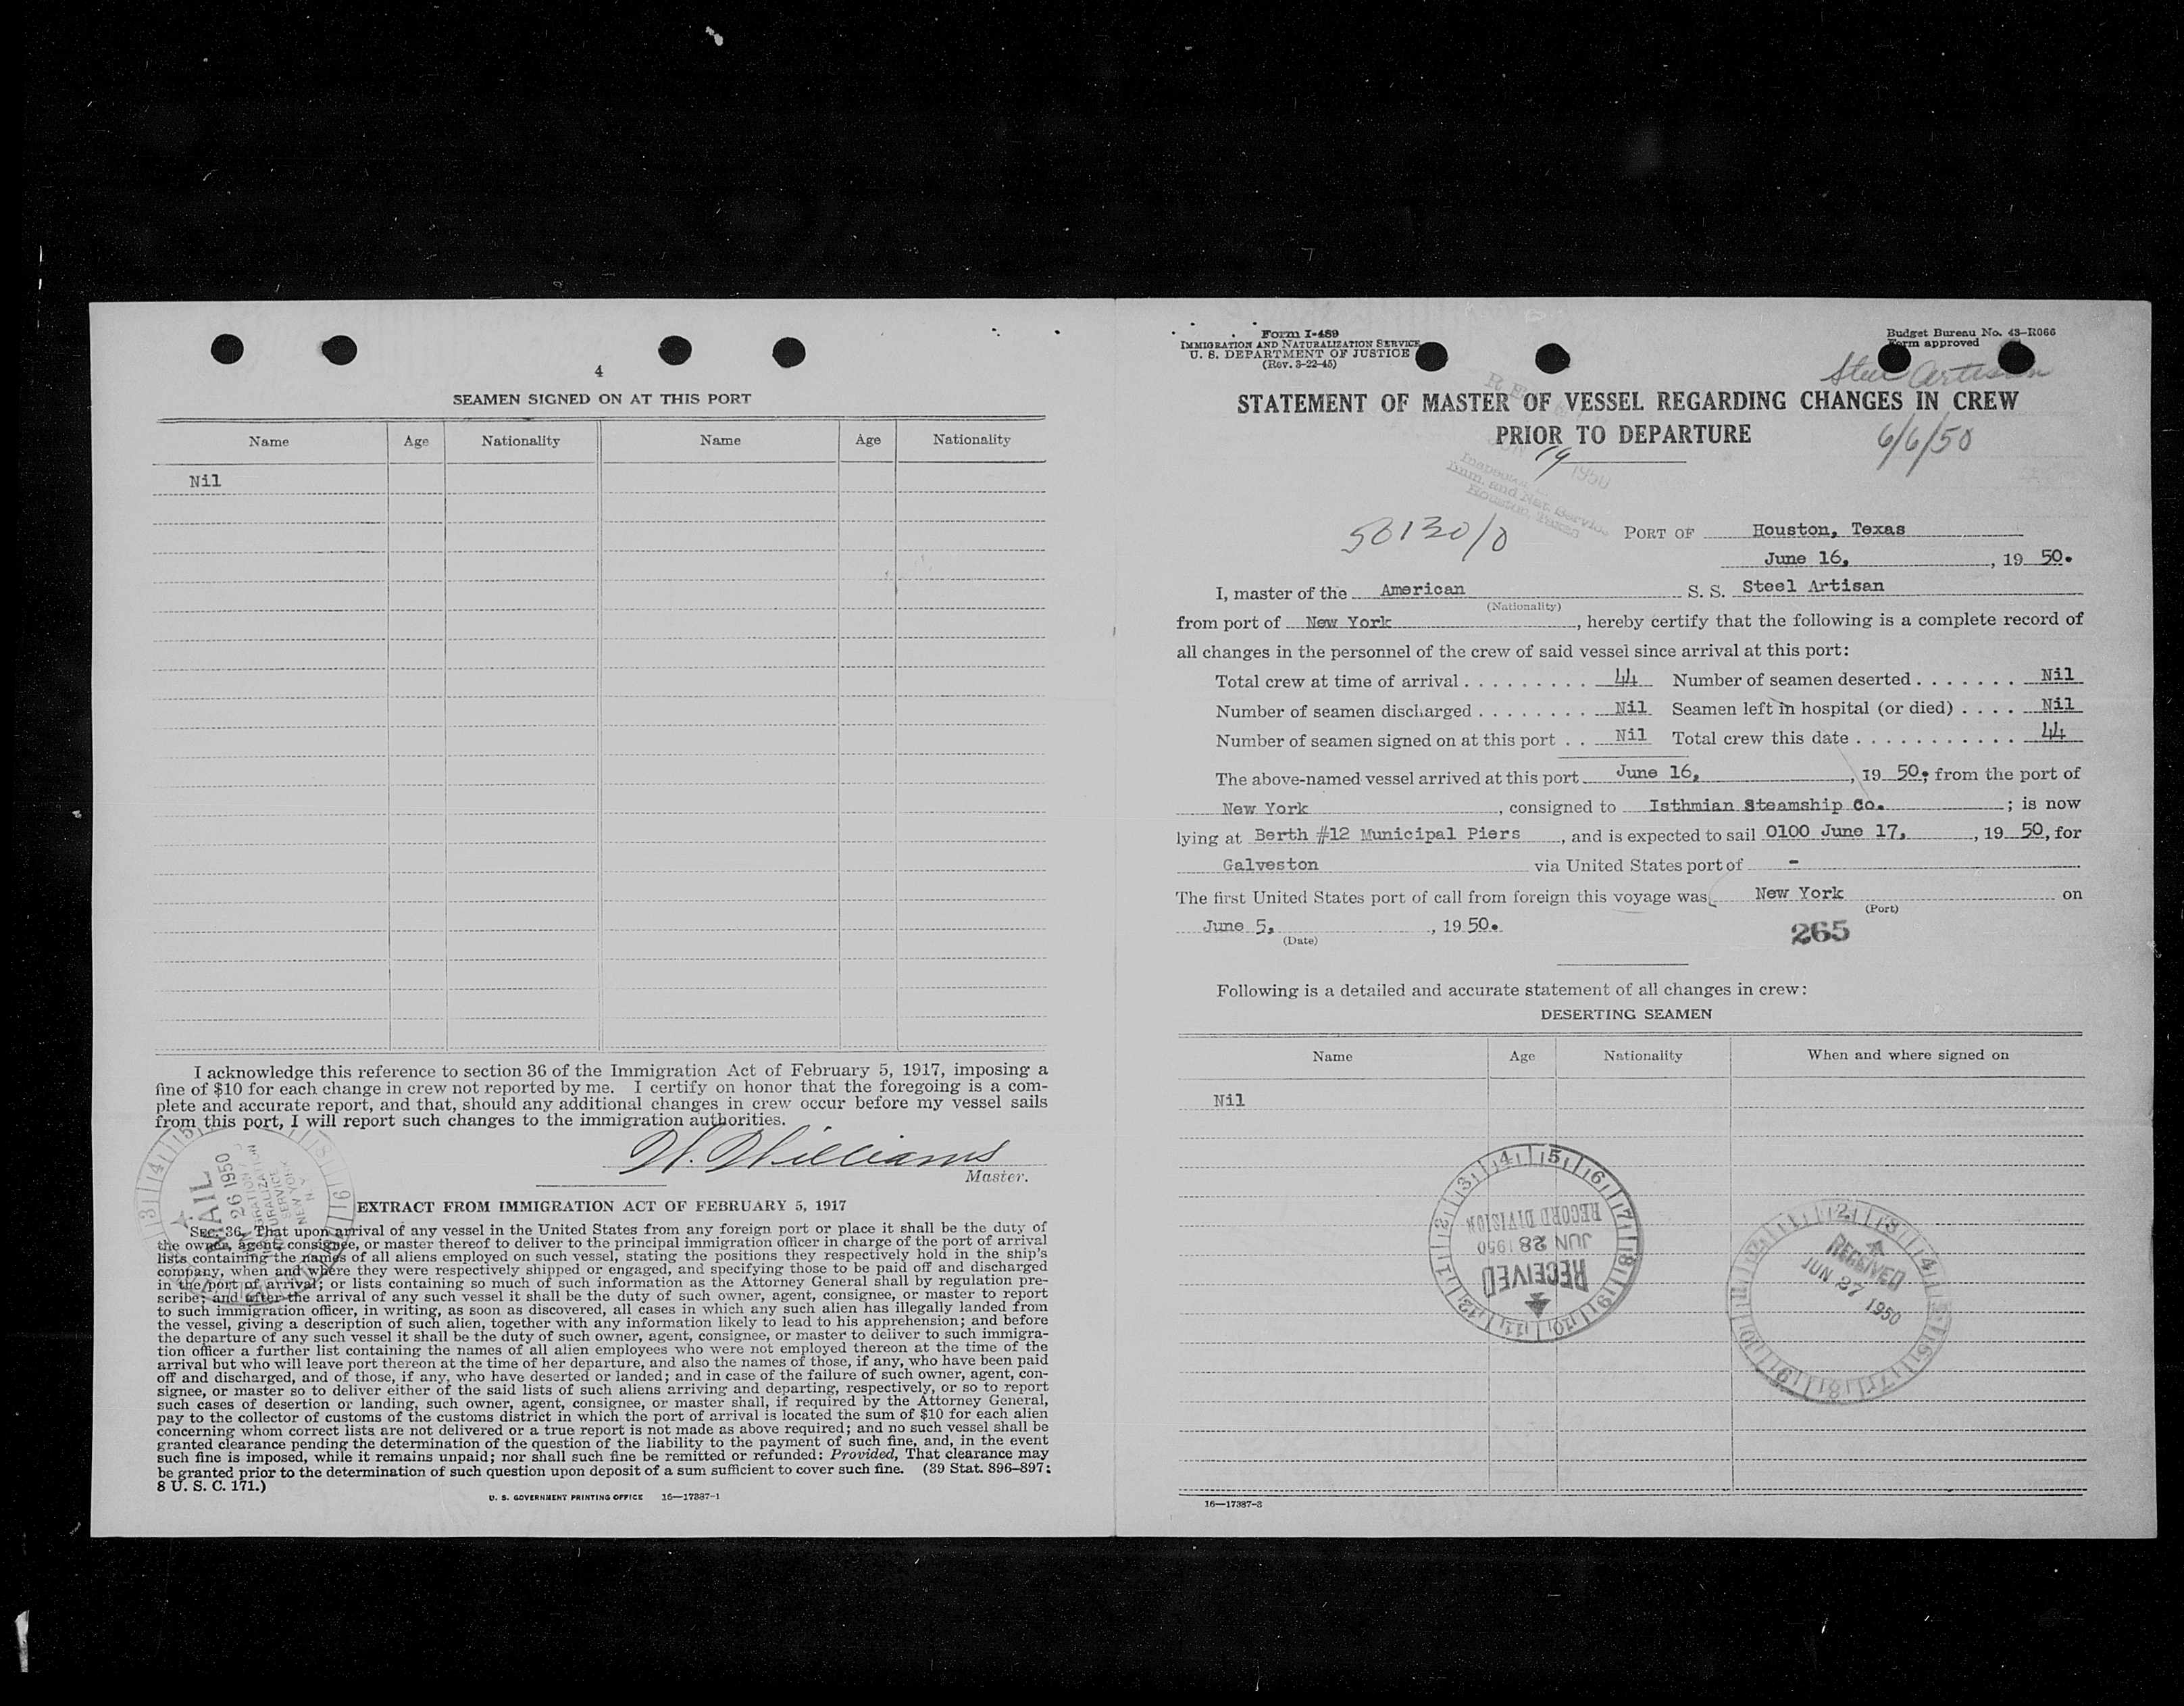 4
SEAMEN SIGNED ON AT THIS PORT
Name Age Nationality Name Age Nationality
Nil
I acknowledge this reference to section 36 of the Immigration Act of February 5, 1917, imposing a
fine of $10 for each change in crew not reported by me. I certify on honor that the foregoing is a com-
plete and accurate report, and that, should any additional changes in crew occur before my vessel sails
from this port, I will report such changes to the immigration authorities.
W. Williams
Master.
MAIL
26 1950
NEW YORK
N. Y.
EXTRACT FROM IMMIGRATION ACT OF FEBRUARY 5, 1917
SEC. 36. That upon arrival of any vessel in the United States from any foreign port or place it shall be the duty of
the owner, agent, consignee, or master thereof to deliver to the principal immigration officer in charge of the port of arrival
lists containing the names of all aliens employed on such vessel, stating the positions they respectively hold in the ship's
company, when and where they were respectively shipped or engaged, and specifying those to be paid off and discharged
in the port of arrival; or lists containing so much of such information as the Attorney General shall by regulation pre-
scribe; and after the arrival of any such vessel it shall be the duty of such owner, agent, consignee, or master to report
to such immigration officer, in writing, as soon as discovered, all cases in which any such alien has illegally landed from
the vessel, giving a description of such alien, together with any information likely to lead to his apprehension; and before
the departure of any such vessel it shall be the duty of such owner, agent, consignee, or master to deliver to such immigra-
tion officer a further list containing the names of all alien employees who were not employed thereon at the time of the
arrival but who will leave port thereon at the time of her departure, and also the names of those, if any, who have been paid
off and discharged, and of those, if any, who have deserted or landed; and in case of the failure of such owner, agent, con-
signee, or master so to deliver either of the said lists of such aliens arriving and departing, respectively, or so to report
such cases of desertion or landing, such owner, agent, consignee, or master shall, if required by the Attorney General,
pay to the collector of customs of the customs district in which the port of arrival is located the sum of $10 for each alien
concerning whom correct lists are not delivered or a true report is not made as above required; and no such vessel shall be
granted clearance pending the determination of the question of the liability to the payment of such fine, and, in the event
such fine is imposed, while it remains unpaid; nor shall such fine be remitted or refunded: Provided, That clearance may
be granted prior to the determination of such question upon deposit of a sum sufficient to cover such fine. (39 Stat. 896–897;
8 U. S. C. 171.)
U. S. GOVERNMENT PRINTING OFFICE 16—17387-1
Form I-489
IMMIGRATION AND NATURALIZATION SERVICE
U. S. DEPARTMENT OF JUSTICE
(Rev. 3-22-45)
Budget Bureau No. 43-R066
Form approved
Steel Artisan
STATEMENT OF MASTER OF VESSEL REGARDING CHANGES IN CREW
PRIOR TO DEPARTURE
6/6/50
19 1950
Imm. and Nat. Service
Houston, Texas
50130/0
PORT OF Houston, Texas
June 16, , 19 50.
I, master of the American S. S. Steel Artisan
(Nationality)
from port of New York , hereby certify that the following is a complete record of
all changes in the personnel of the crew of said vessel since arrival at this port:
Total crew at time of arrival . . . . . . . . . 44 Number of seamen deserted . . . . . . . Nil
Number of seamen discharged . . . . . . . . Nil Seamen left in hospital (or died) . . . . Nil
Number of seamen signed on at this port . . Nil Total crew this date . . . . . . . . . . . . 44
The above-named vessel arrived at this port June 16, , 19 50, from the port of
New York , consigned to Isthmian Steamship Co. ; is now
lying at Berth #12 Municipal Piers , and is expected to sail 0100 June 17, , 19 50, for
Galveston via United States port of -
The first United States port of call from foreign this voyage was New York on
(Port)
June 5, , 19 50.
(Date)
265
Following is a detailed and accurate statement of all changes in crew:
DESERTING SEAMEN
Name Age Nationality When and where signed on
Nil
RECEIVED
JUN 28 1950
RECORD DIVISION
RECEIVED
JUN 27 1950
16—17387-3